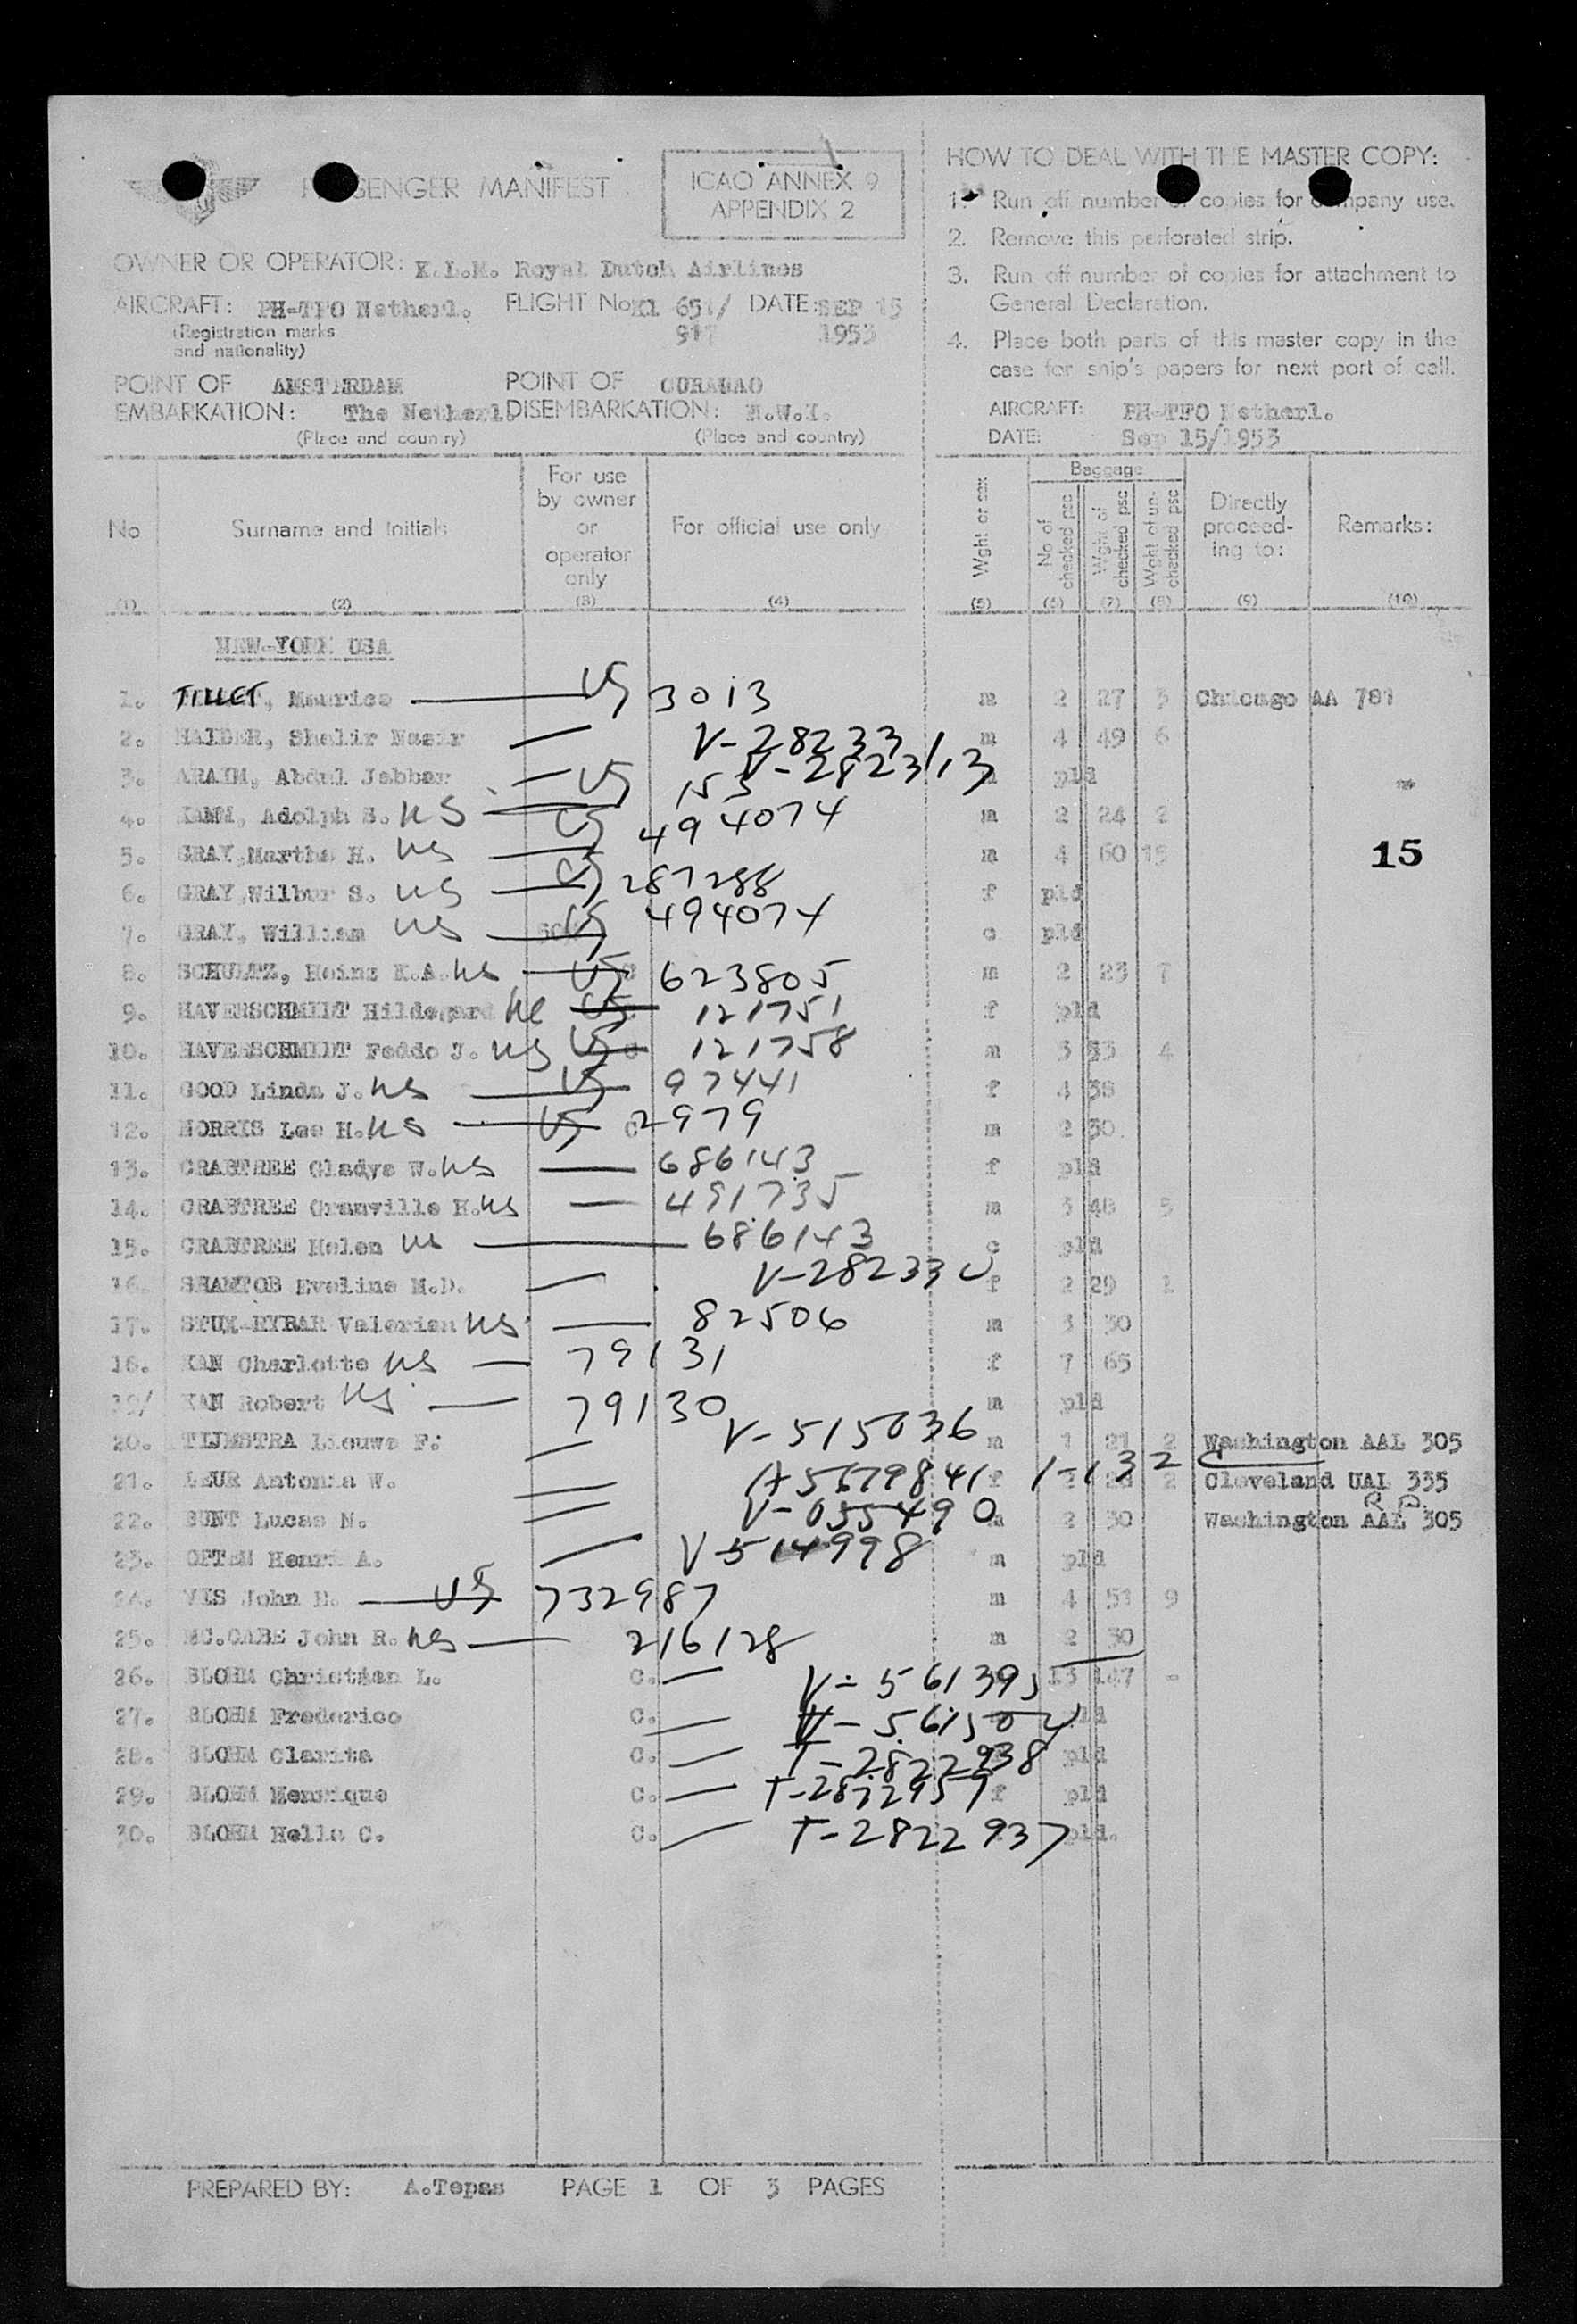 SENGER MANIFEST
ICAO ANNEX 9
APPENDIX 2
OWNER OR OPERATOR: K.L.M. Royal Dutch Airlines
AIRCRAFT: PH-TFO Netherl. FLIGHT No: Kl 651/ DATE: SEP 15
(Registration marks
and nationality) 917 1953
POINT OF AMSTERDAM POINT OF CURACAO
EMBARKATION: The Netherl. DISEMBARKATION: N.W.I.
(Place and country) (Place and country)
HOW TO DEAL WITH THE MASTER COPY:
1. Run off number of copies for company use.
2. Remove this perforated strip.
3. Run off number of copies for attachment to
General Declaration.
4. Place both parts of this master copy in the
case for ship's papers for next port of call.
AIRCRAFT: PH-TFO Netherl.
DATE: Sep 15/1953
No Surname and Initials For use by owner or operator only For official use only Wght or sex Baggage No of checked psc Wght of checked psc Wght of un-checked psc Directly proceed-ing to: Remarks:
(1) (2) (3) (4) (5) (6) (7) (8) (9) (10)
NEW-YORK USA
1. TILLET, Maurice US 3013 m 2 27 3 Chicago AA 781
2. HAIDER, Shelir Nasir V-28233 m 4 49 6
3. ARAIM, Abdul Jabbar US 153 V-2823113 pld
4. KAMM, Adolph S. US US 494074 m 2 24 2
5. GRAY, Martha H. US m 4 60 15 15
6. GRAY, Wilbur S. US US 287288 f pld
7. GRAY, William US US 494074 c pld
8. SCHULTZ, Heinz K.A. US US 623805 m 2 23 7
9. HAVERSCHMIDT Hildegard US US 121751 f pld
10. HAVERSCHMIDT Feddo J. US US 121758 m 3 53 4
11. GOOD Linda J. US US 97441 f 4 38
12. MORRIS Lee H. US US C 2979 m 2 30
13. CRABTREE Gladys W. US 686143 f pld
14. CRABTREE Granville H. US 491735 m 3 48 5
15. CRABTREE Helen US 686143 c pld
16. SHAMTOB Eveline M.D. V-282330 f 2 29 1
17. STUX-RYBAR Valerian US 82506 m 3 30
18. KAN Charlotte US 79131 f 7 65
19/ KAN Robert US 79130 m pld
20. TIJMSTRA Lieuwe F. V-515036 m 1 21 2 Washington AAL 305
21. LEUR Antonia W. A5679841 1-132 f 2 2 Cleveland UAL 335
22. BUNT Lucas N. V-055490 2 30 Washington AAL 305
23. OFTEN Henri A. V-514998 m pld
24. VIS John H. US 732987 m 4 51 9
25. MC.CABE John R. US 216128 m 2 30
26. BLOHM Christian L. C. V-561395 13 147 -
27. BLOHM Frederico C. V-561502 pld
28. BLOHM Clarita C. T-2822938 pld
29. BLOHM Henrique C. T-2822957 f pld
30. BLOHM Hella C. C. T-2822937 pld.
PREPARED BY: A.Tepas PAGE 1 OF 3 PAGES